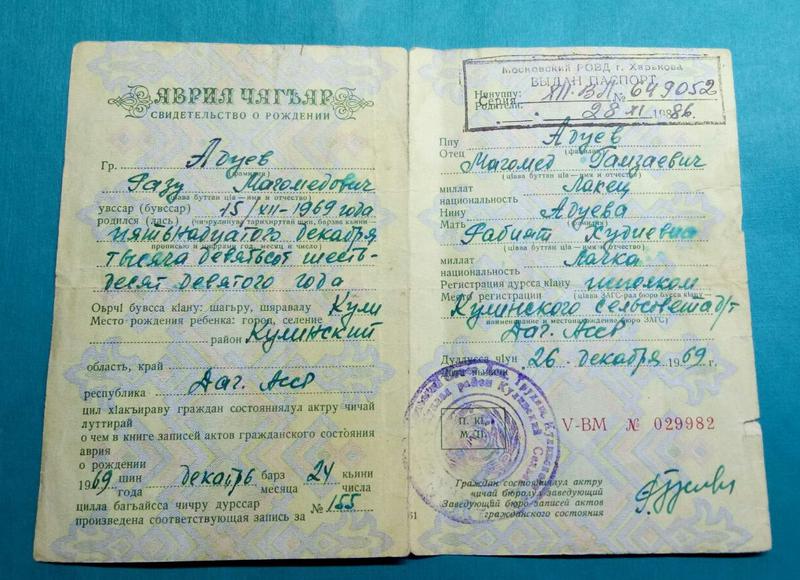 АВРИЛ ЧАГЪАР
СВИДЕТЕЛЬСТВО О РОЖДЕНИИ
Гр. Абуев
(фамилия)
Разу Магомедович
(цIава буттан цIа — имя и отчество)
увссар (бувссар) 15/XII-1969 года
родился (лась)
пятнадцатого декабря
прописью и цифрами год, месяц и число)
тысяча девятьсот шесть-
десят девятого года
Оьрчl бувсса кlану: шагьру, шяравалу Кули
Место рождения ребенка: город, селение
район Кулинский
область, край
республика Даг. Асср
цил хlакъираву граждан состояниялул актру чичай
луттирай
о чем в книге записей актов гражданского состояния
аврия
о рождении
1969 шин декабрь барз 24 кьини
года месяца числа
цилла багьайсса чичру дурссар № 155
произведена соответствующая запись за
Московский РОВД г. Харькова
ВЫДАН ПАСПОРТ
Нену­ппу:
Серия XII-ВЛ № 649052
Родители: 28 XI 1986.
Ппу Абуев
Отец (фамилия)
Магомед Гамзаевич
(цIава буттан цIа — имя и отчество)
миллат Лакец
национальность
Нину Абуева
Мать (фамилия)
Рабият Кудиевна
(цIава буттан цIа — имя и отчество)
миллат Лачка
национальность
Регистрация дурсса кlану исполком
Место регистрации (цIава ЗАГС-рал бюро бусса кIану
Кулинского сельсовета д/т
наименование и местонахождение бюро ЗАГС)
Даг. Асср
Дуллусса чlун 26 декабря 1969 г.
Дата выдачи
П. Кl.
М. П.
V-ВМ № 029982
Граждан состояниялул актру
чичай бюролул заведующий
Заведующий бюро записей актов
гражданского состояния